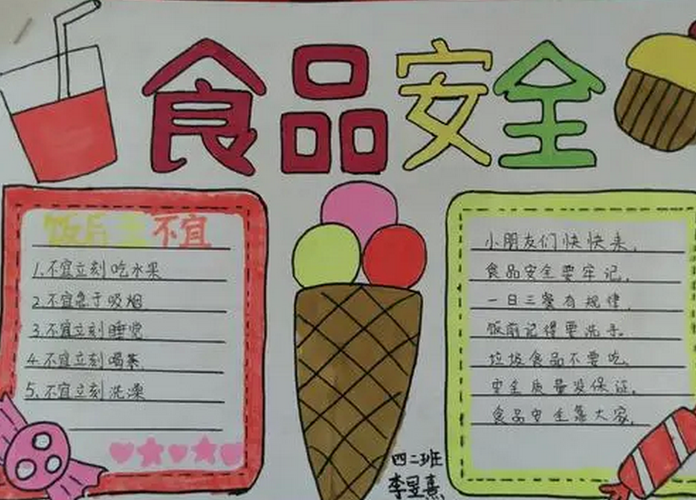 食品安全
饭后五不宜
1.不宜立刻吃水果
2.不宜急于吸烟
3.不宜立刻睡觉
4.不宜立刻喝茶
5.不宜立刻洗澡
小朋友们快快来,
食品安全要牢记,
一日三餐有规律,
饭前记得要洗手。
垃圾食品不要吃,
安全质量没保证,
食品安全靠大家,
四二班
李昱熹